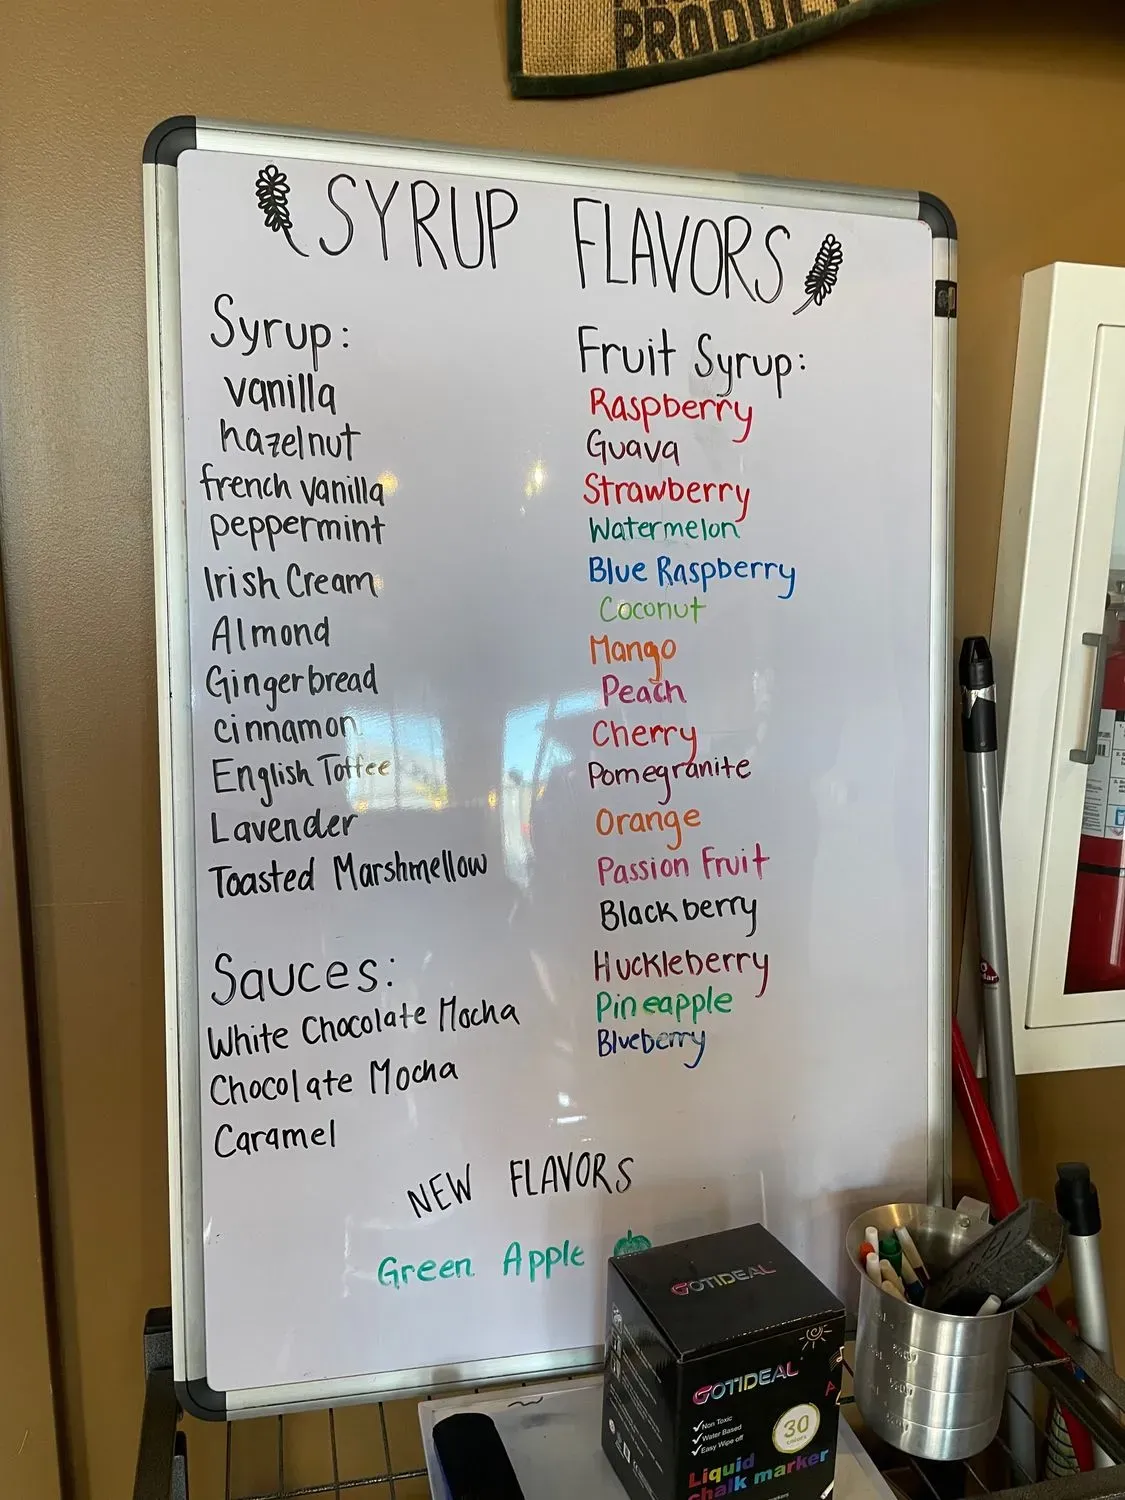 PRODU
SYRUP FLAVORS
Syrup:
vanilla
hazelnut
french vanilla
peppermint
Irish Cream
Almond
Gingerbread
cinnamon
English Toffee
Lavender
Toasted Marshmellow
Sauces:
White Chocolate Mocha
Chocolate Mocha
Caramel
Fruit Syrup:
Raspberry
Guava
Strawberry
Watermelon
Blue Raspberry
Coconut
Mango
Peach
Cherry
Pomegranite
Orange
Passion Fruit
Blackberry
Huckleberry
Pineapple
Blueberry
NEW FLAVORS
Green Apple
GOTIDEAL
GOTIDEAL
Non Toxic
Water Based
Easy Wipe off
30
COLORS
Liquid
Chalk marker